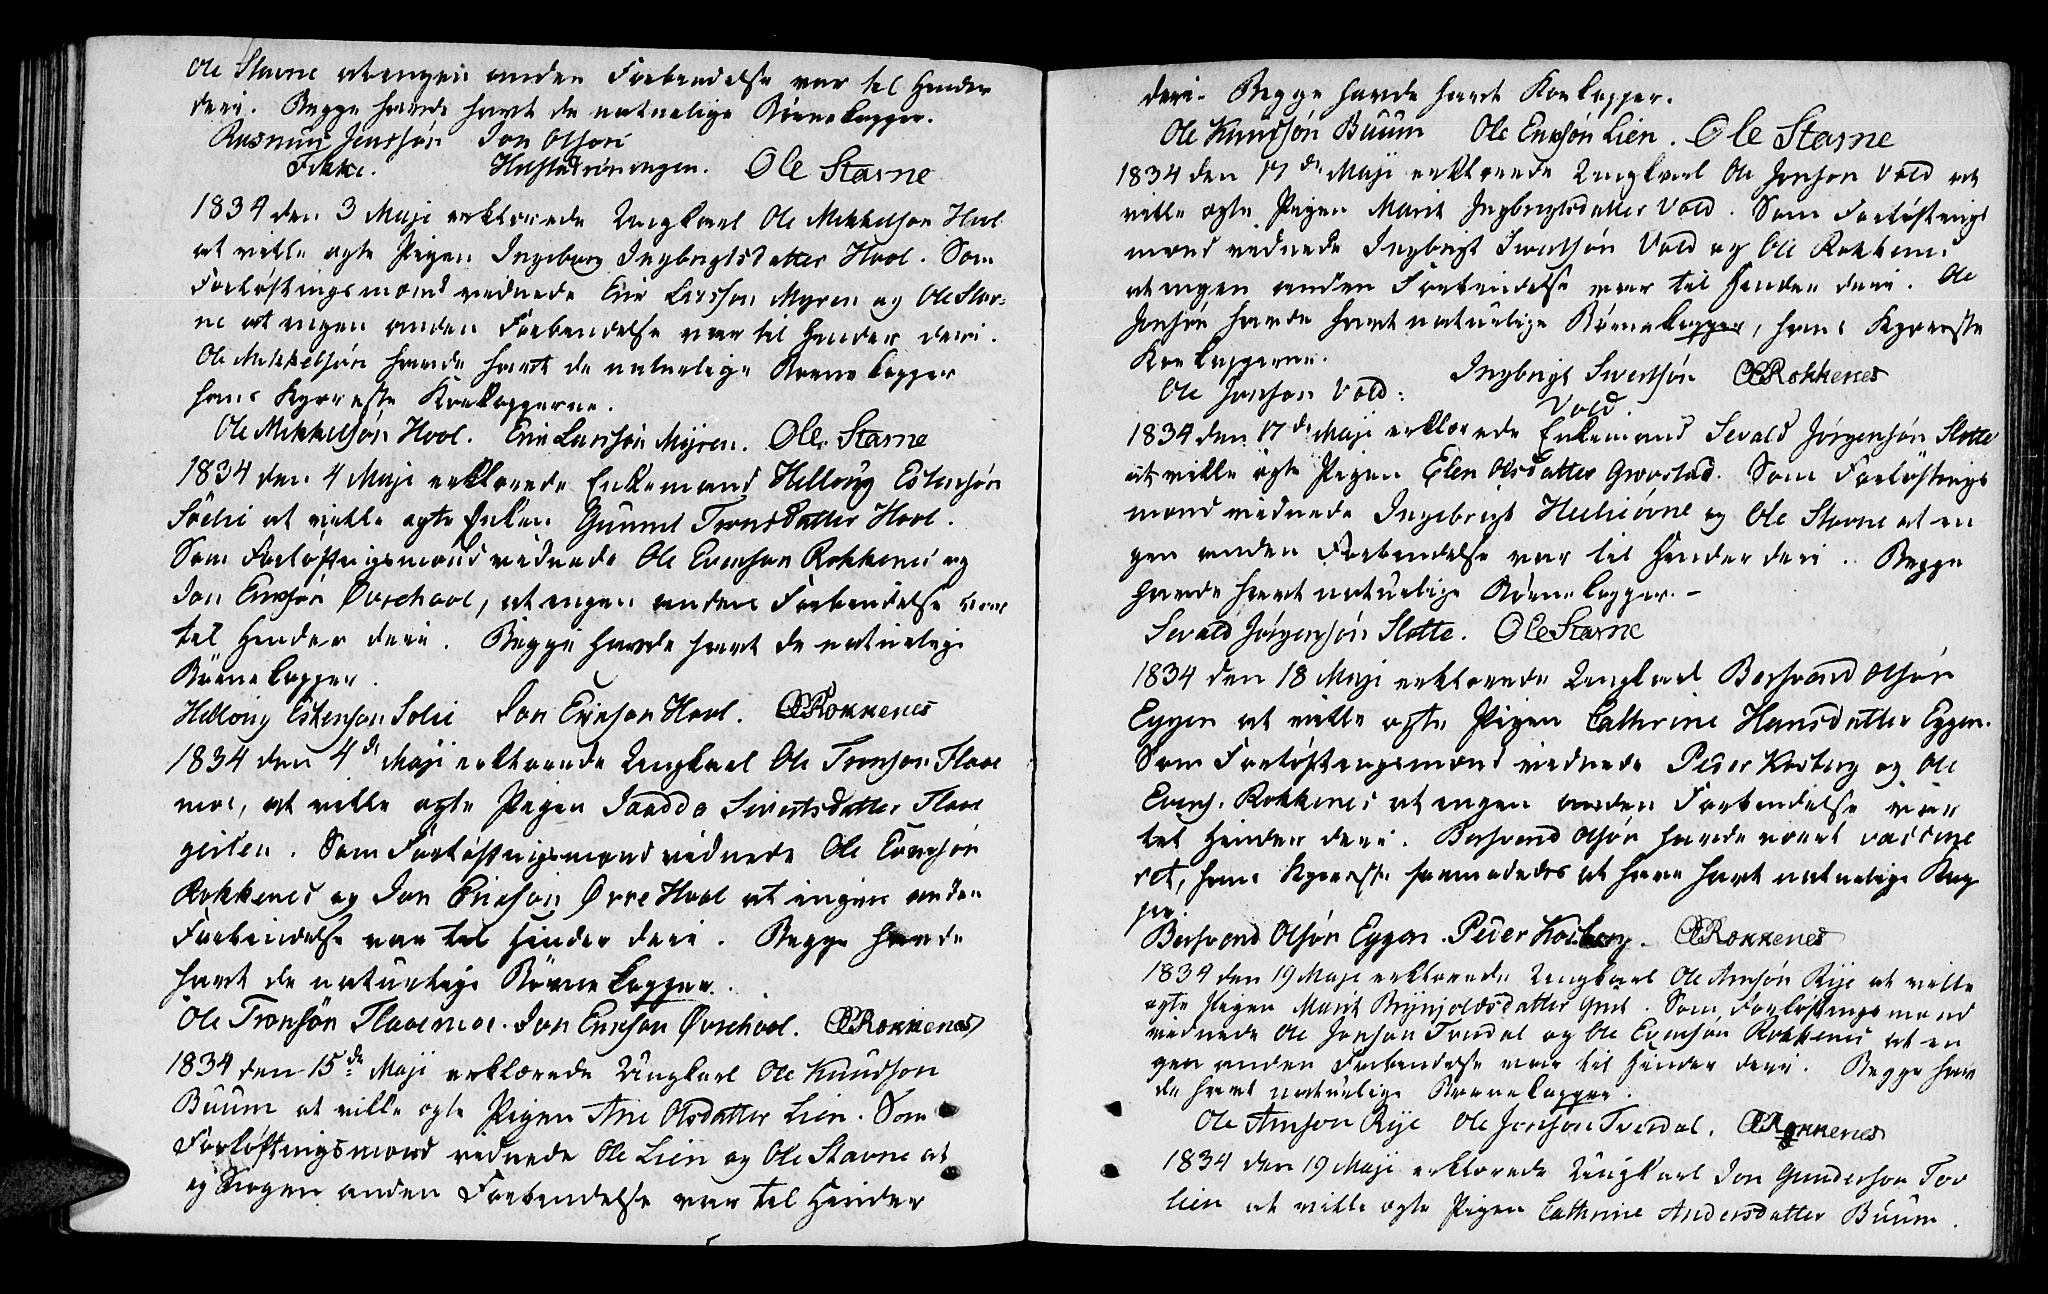 Ole Stavne at ingen anden Forbindelse var til Hinder
deri. Begge havde havt de naturlige Børnekopper.
Rasmus Jensøn Jon Olsøn
Ole Stavne
1834 den 3 Maji erklærede Ungkarl Ole Mikkelsøn Hool
at ville ægte Pigen Ingeborg Ingbrigtsdatter Hool. Som
Forløftningsmænd vidnede Eric Larsson Myren og Ole Stav-
ne at ingen anden Forbindelse var til Hinder deri.
Ole Mikkelsøn havde havt de naturlige Børnekopper
hans Kjæreste Kokopperne.
Ole Mikkelsøn Hool. Eric Larssøn Myren. Ole Stavne
1834 den 4 Maji erklærede Enkemand Hellong Estensøn
Solie at ville ægte Enken Gunnil Tronsdatter Hool.
Som Forløftningsmænd vidnede Ole Evensøn Rokkenes og
Jon Ericsøn Øvrehool, at ingen anden Forbindelse var
til Hinder deri. Begge havde havt de naturlige
Børnekopper.
Hellong Estenson Solie Jon Ericson Hool. OERokkenes
1834 den 4de Maji erklærede Ungkarl Ole Tronson Flaae
moe, at ville ægte Pigen Sivertsdatter Flaae
geilen. Som Forløftningsmænd vidnede Ole Evensøn
Rokkenes og Jon Ericsøn Øvre Hool at ingen anden
Forbindelse var til Hinder deri. Begge havde
havt de naturlige Børnekopper.
Ole Tronsøn Flaaemoe. Jon Ericson Øvrehool. OERokkenes
1834 den 15de Maji erklærede Ungkarl Ole Knudson
Buum at ville ægte Pigen Ane Olsdatter Lien. Som
Forløftningsmænd vidnede Ole Lien og Ole Stavne at
og ingen anden Forbindelse var til Hinder
deri. Begge havde havt Kokopper.
Ole Knudsøn Buum Ole Enersøn Lien. Ole Stavne
1834 den 17de Maji erklærede Ungkarl Ole Jonson Vold at
ville ægte Pigen Marit Ingbrigtsdatter Vold. Som Forløftnings
mænd vidnede Ingbrigt Sivertsøn Vold og Ole Rokkenes
at ingen anden Forbindelse var til Hinder deri. Ole
Jonsøn havde havt naturlige Børnekopper, hans Kjæreste
Kokopperne.
Ole Jonson Vold. Ingbrigt Sivertsøn OERokkenes
Vold.
1834 den 17de Maji erklærede Enkemand Sevald Jørgensøn Slotte
at ville ægte Pigen Elen Olsdatter Som Forløftnings
mænd vidnede Ingebrigt og Ole Stavne at in
gen anden Forbindelse var til Hinder deri. Begge
havde havt naturlige Børnekopper. –
Sevald Jørgensøn Slotte. Ole Stavne
1834 den 18 Maji erklærede Ungkarl Bersvend Olsøn
Eggen at ville ægte Pigen Cathrine Hansdatter Eggen.
Som Forløftningsmænd vidnede Peder Kosberg og Ole
Evens. Rokkenes at ingen anden Forbindelse var
til Hinder deri. Bersvend Olsøn havde været vaccine
ret, hans Kjæreste formodedes at have havt naturlige Kop
per.
Bersvend Olsøn Eggen. Peder Kosberg. OERokkenes
1834 den 19 Maji erklærede Ungkarl Ole Arnsøn Rije at ville
ægte Pigen Marit Brynjoldsdatter Som Forløftningsmænd
vidnede Ole Jonsøn Trondal og Ole Evensøn Rokkenes at in
gen anden Forbindelse var til Hinder deri. Begge hav
de havt naturlige Børnekopper.
Ole Arnson Rije Ole Jonson OERokkenes
1834 den 19 Maji erklærede Ungkarl Jon Gunderson Tor
lien at ville ægte Pigen Cathrine Andersdatter Buum.